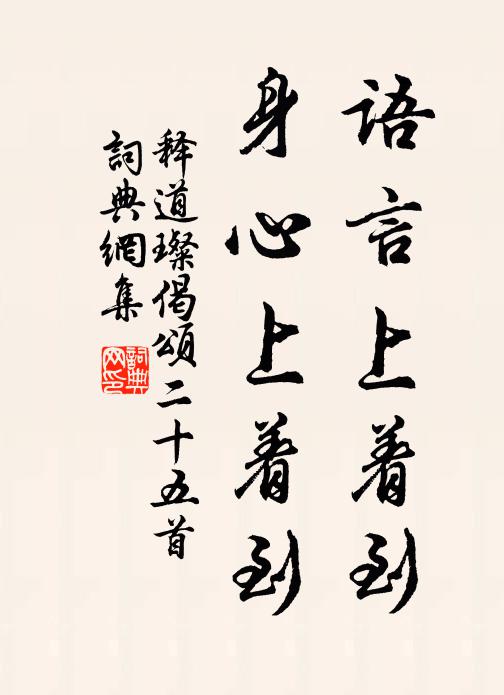 語言上着到
身心上着到
释道璨偈頌二十五首
詞典網集
詞典
网印